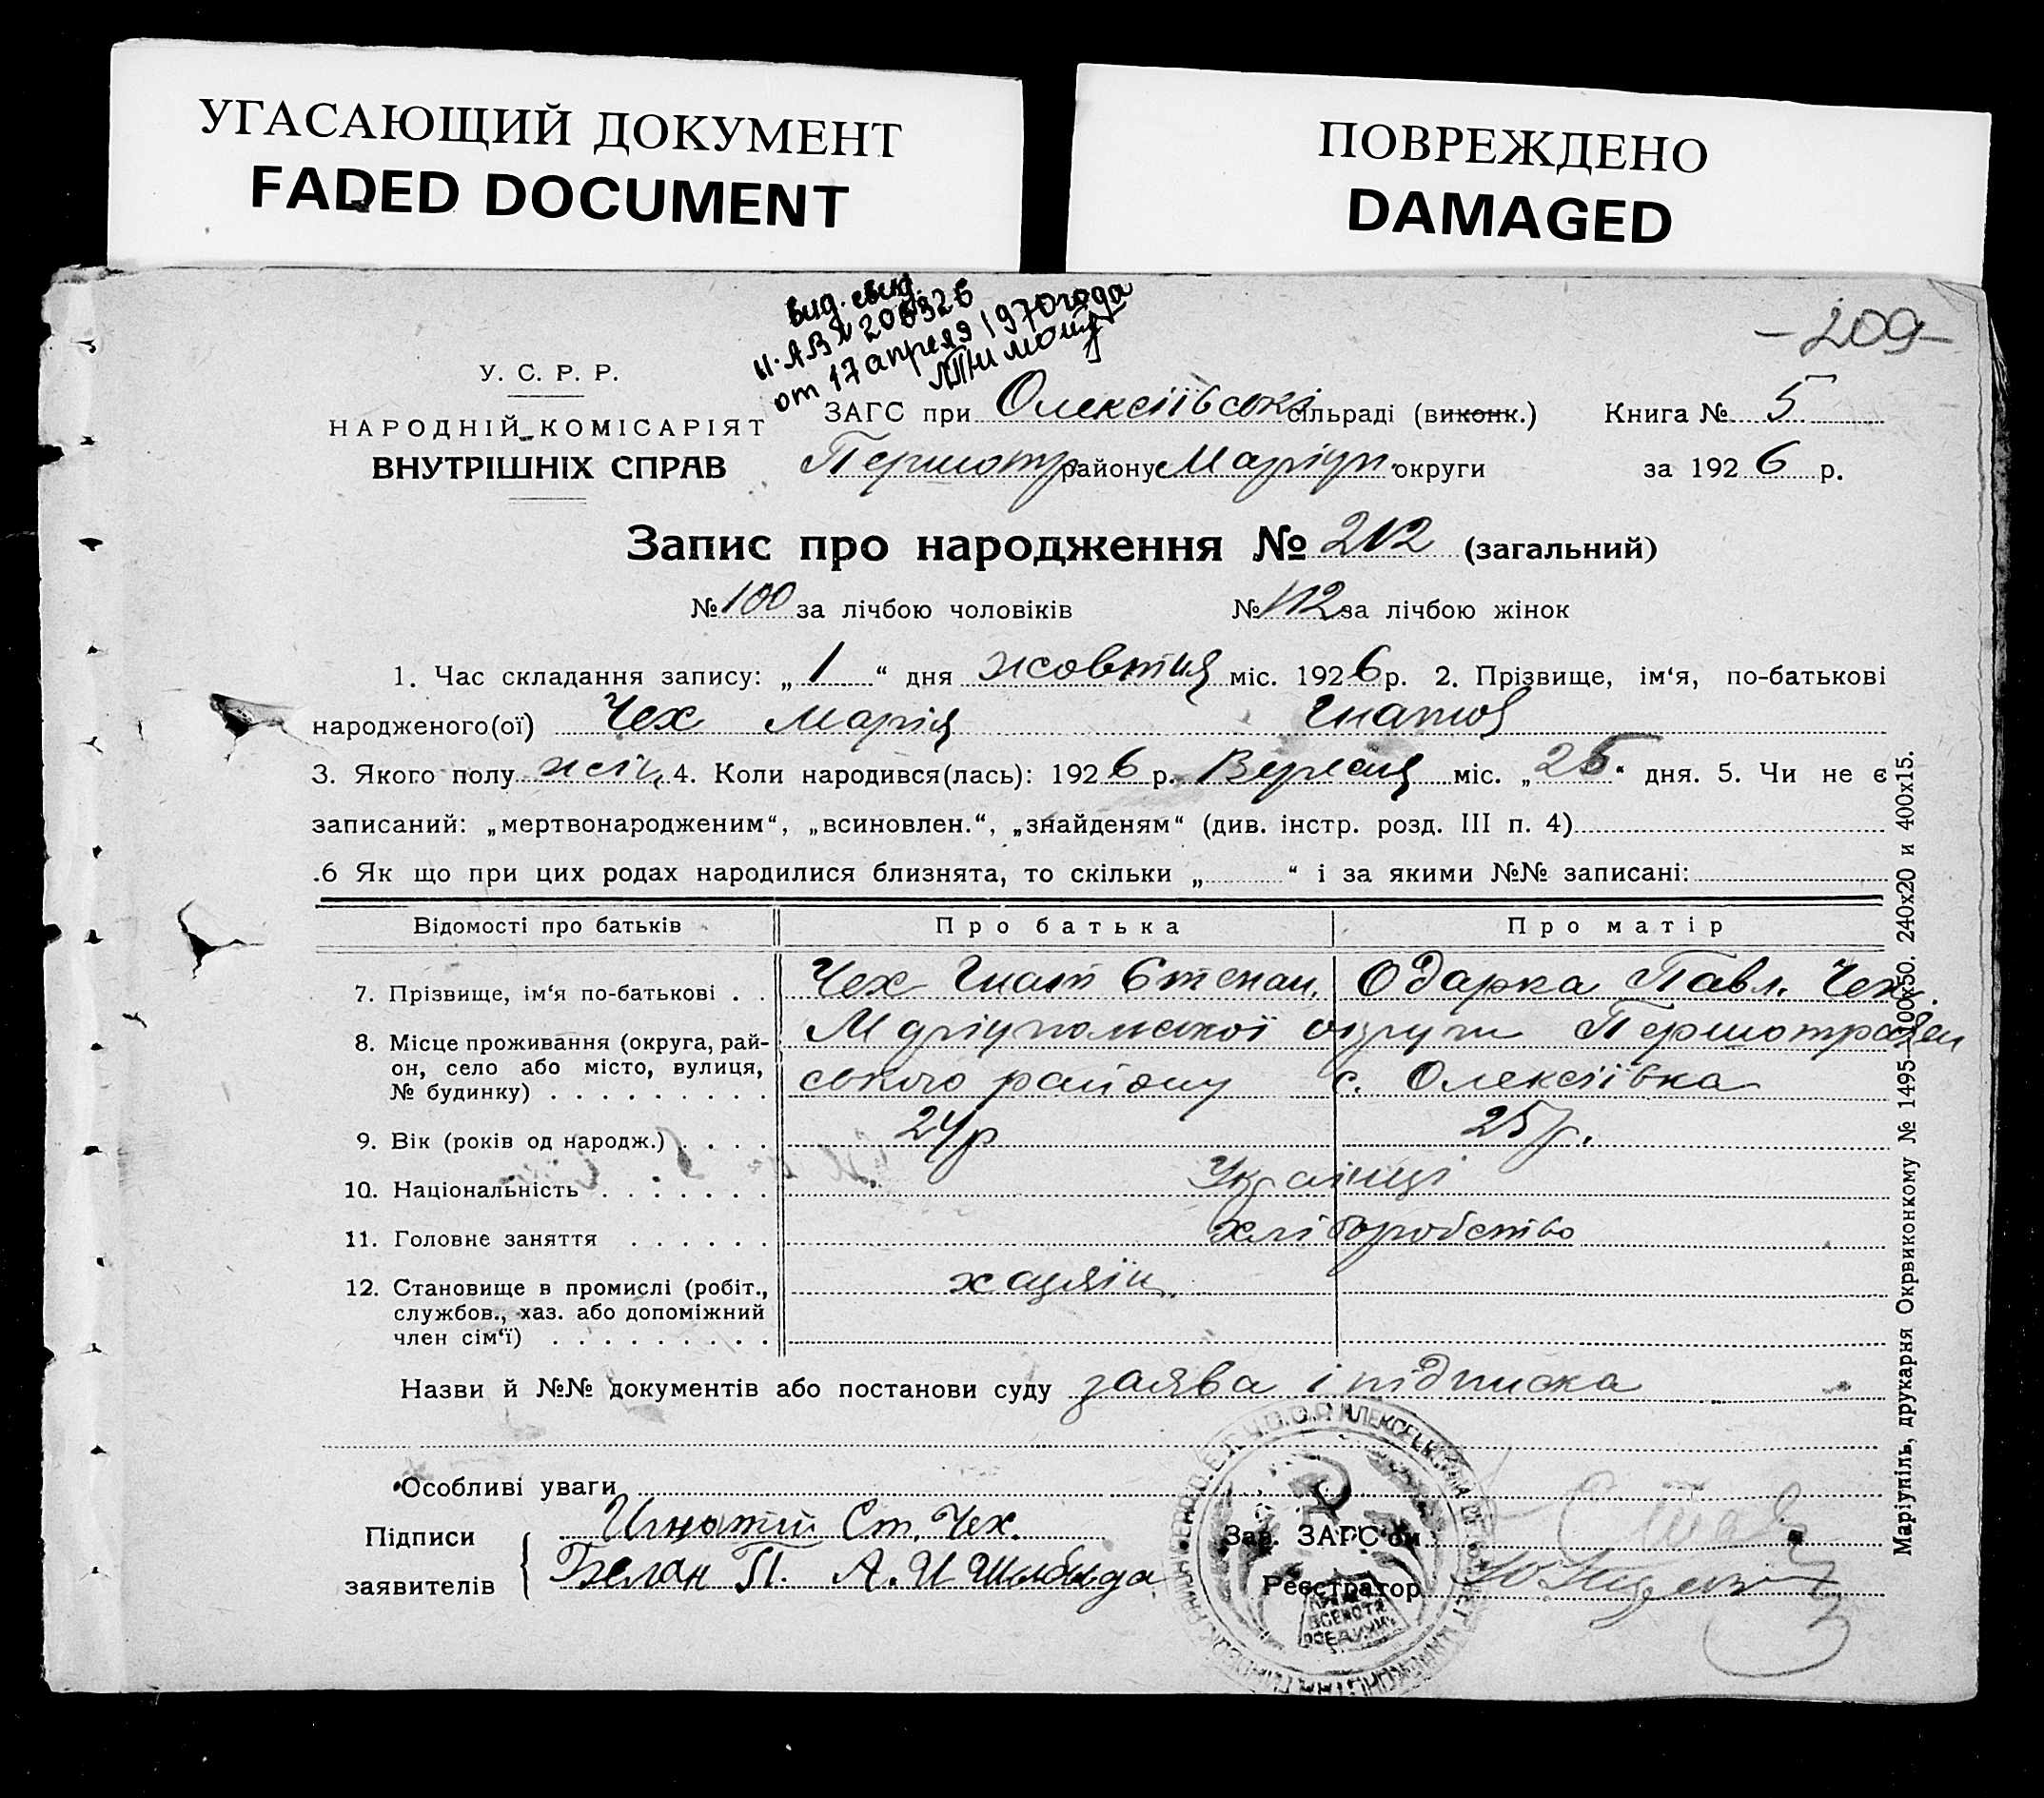 УГАСАЮЩИЙ ДОКУМЕНТ
FADED DOCUMENT
ПОВРЕЖДЕНО
DAMAGED
вид. свид.
от 17 апреля 1970 года
-209-
У. С. Р. Р.
НАРОДНІЙ КОМІСАРІЯТ
ВНУТРІШНІХ СПРАВ
ЗАГС при Олексіївській сільраді (виконк.) Книга № 5
Першотр району Маріуп. округи за 1926 р.
Запис про народження № 212 (загальний)
№ 100 за лічбою чоловіків № 112 за лічбою жінок
1. Час складання запису: „ 1 “ дня жовтня міс. 1926 р. 2. Прізвище, ім‘я, по-батькові
народженого(ої) Чех Марія Гнатов
3. Якого полу жін. 4. Коли народився(лась): 1926 р. Вересня міс. „ 25 “ дня. 5. Чи не є
записаний: „мертвонародженим“, „всиновлен.“, „знайденям“ (див. інстр. розд. III п. 4)
.6 Як що при цих родах народилися близнята, то скільки „ “ і за якими №№ записані:
Відомості про батьків Про батька Про матір
7. Прізвище, ім‘я по-батькові . . Чех Гнат Степан. Одарка Павл. Чех.
8. Місце проживання (округа, рай-
он, село або місто, вулиця,
№ будинку) . . . . . . . . .
Маріупольської округи Першотравен
ського району с. Олексіївка
9. Вік (років од народж.) . . . . 24 р 25 р.
10. Національність . . . . . . . Українці
11. Головне заняття . . . . . . хліборобство
12. Становище в промислі (робіт.,
службов., хаз. або допоміжний
член сім‘ї) . . . . . . . . .
хазяїн.
Назви й №№ документів або постанови суду заява і підписка
Особливі уваги
Підписи
заявителів
Игнатій Ст. Чех.
Белан П. А. И
Зав. ЗАГС‘ом
Реєстратор
Маріупіль, друкарня Окрвиконкому № 1495—100х50. 240х20 и 400х15.